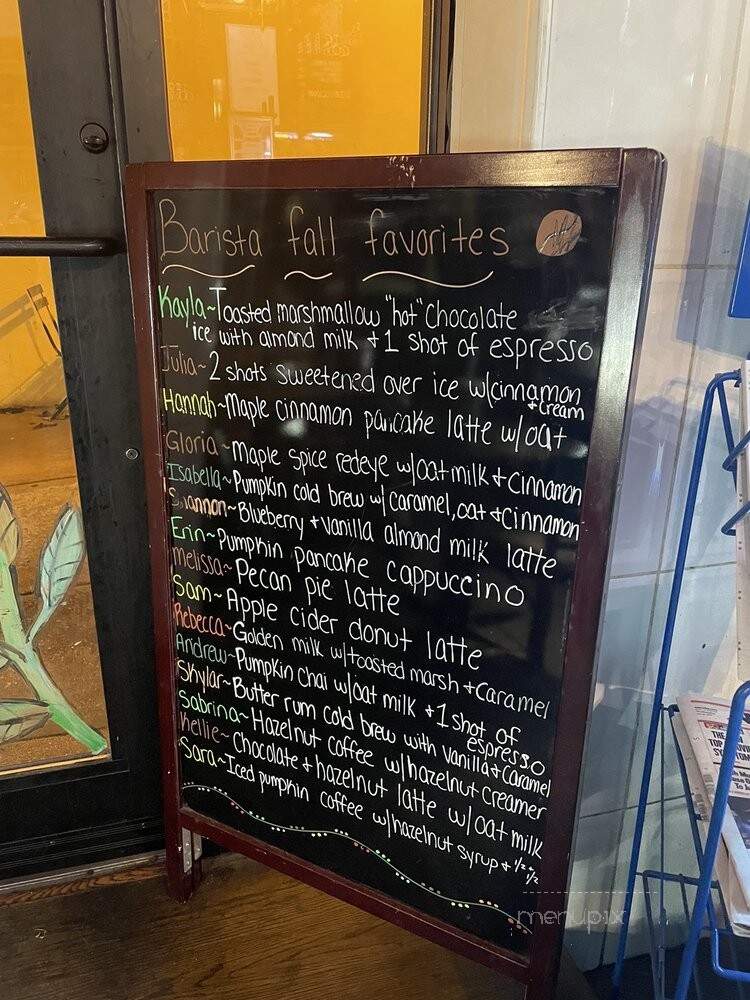 Barista fall favorites
Kayla~Toasted marshmallow "hot" Chocolate
ice with almond milk + 1 shot of espresso
Julia~2 shots sweetened over ice w/cinnamon
+ cream
Hannah~Maple cinnamon pancake latte w/oat
Gloria~Maple spice redeye w/oat milk + cinnamon
Isabella~Pumpkin cold brew w/ caramel, oat + cinnamon
Shannon~Blueberry + vanilla almond milk latte
Erin~Pumpkin pancake cappuccino
Melissa~Pecan pie latte
Sam~Apple cider donut latte
Rebecca~Golden milk w/toasted marsh + caramel
Andrew~Pumpkin chai w/oat milk + 1 shot of
espresso
Skylar~Butter rum cold brew with vanilla + caramel
Sabrina~Hazelnut coffee w/hazelnut creamer
Kellie~Chocolate + hazelnut latte w/oat milk
Sara~Iced pumpkin coffee w/hazelnut syrup + 1/2 + 1/2
THE
TOP
menupix